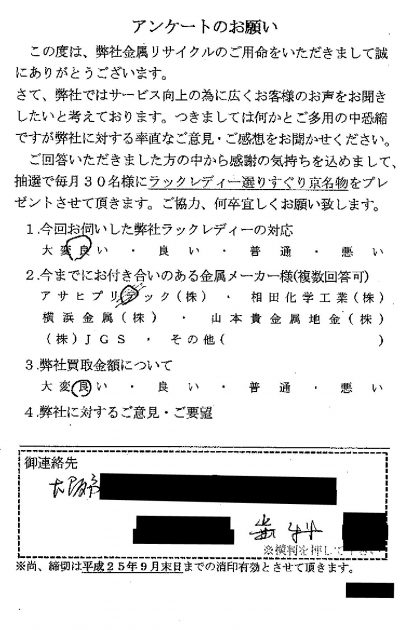 アンケートのお願い
この度は、弊社金属リサイクルのご用命をいただきまして誠
にありがとうございます。
さて、弊社ではサービス向上の為に広くお客様のお声をお聞き
したいと考えております。つきましては何かとご多用の中恐縮
ですが弊社に対する率直なご意見・ご感想をお聞かせください。
ご回答いただきました方の中から感謝の気持ちを込めまして、
抽選で毎月30名様にラックレディー選りすぐり京名物をプレ
ゼントさせて頂きます。ご協力、何卒宜しくお願い致します。
1.今回お伺いした弊社ラックレディーの対応
大変良い・良い・普通・悪い
2.今までにお付き合いのある金属メーカー様(複数回答可)
アサヒプリテック(株)・相田化学工業(株)
横浜金属(株)・山本貴金属地金(株)
(株)JGS・その他( )
3.弊社買取金額について
大変良い・良い・普通・悪い
4.弊社に対するご意見・ご要望
御連絡先
大阪市
歯科
※横判を押して下さい
※尚、締切は平成25年9月末日までの消印有効とさせて頂きます。